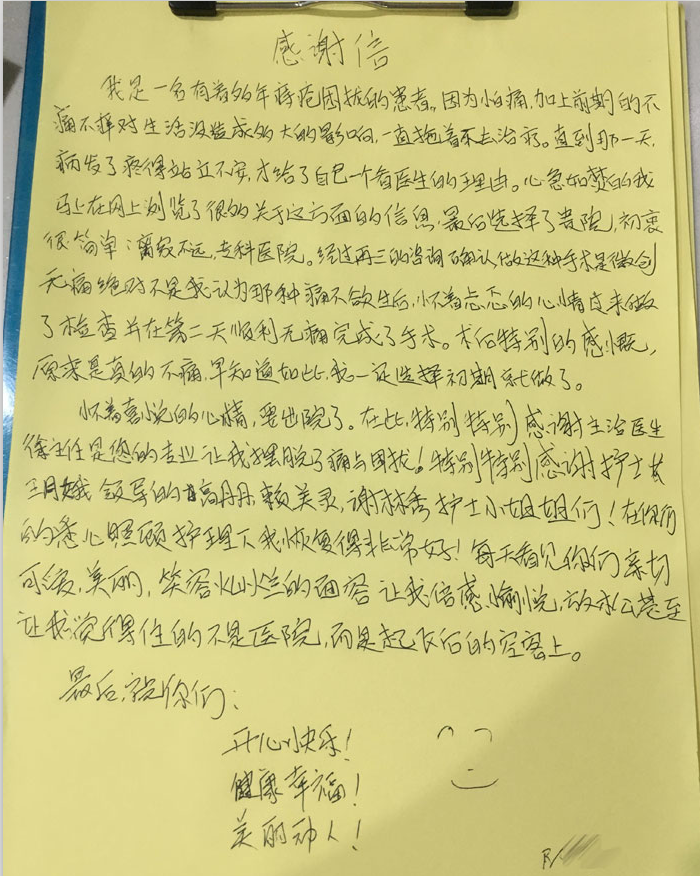 感谢信
我是一名有着多年痔疮困扰的患者。因为怕痛,加上前期的不
痛不痒对生活没造成多大的影响,一直拖着不去治疗。直到那一天,
病发了疼得站立不安,才给了自己一个看医生的理由。心急如焚的我
马上在网上浏览了很多关于这方面的信息,最后选择了贵院,初衷
很简单:离家不远,专科医院。经过再三的咨询确认做这种手术是微创
无痛绝对不是我认为那种痛不欲生后,怀着忐忑的心情过来做
了检查并在第二天顺利无痛完成了手术。术后特别的感慨,
原来是真的不痛,早知道如此,我一定选择初期就做了。
怀着喜悦的心情,要出院了。在此,特别特别感谢主治医生
徐主任是您的专业让我摆脱了痛与困扰!特别特别感谢护士长
领导的高丹丹,赖美灵,谢林秀护士小姐姐们!在你们
的悉心照顾护理下我恢复得非常好!每天看见你们亲切
可爱,美丽,笑容灿烂的面容让我倍感愉悦,放松甚至
让我觉得住的不是医院,而是起飞后的空客上。
最后,祝你们:
开心快乐!
健康幸福!
美丽动人!